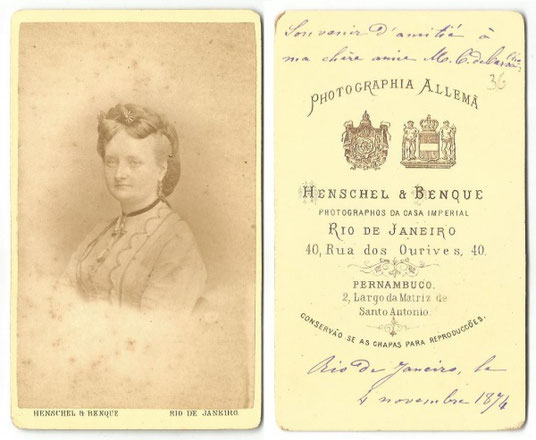 HENSCHEL & BENQUE RIO DE JANEIRO
Souvenir d'amitié à
ma chère amie M. C. de
36
PHOTOGRAPHIA ALLEMÃ
HENSCHEL & BENQUE
PHOTOGRAPHOS DA CASA IMPERIAL
RIO DE JANEIRO
40, Rua dos Ourives, 40.
PERNAMBUCO.
2, Largo da Matriz de
Santo Antonio.
CONSERVÃO SE AS CHAPAS PARA REPRODUCÇÕES.
Rio de Janeiro, le
4 novembre 1874